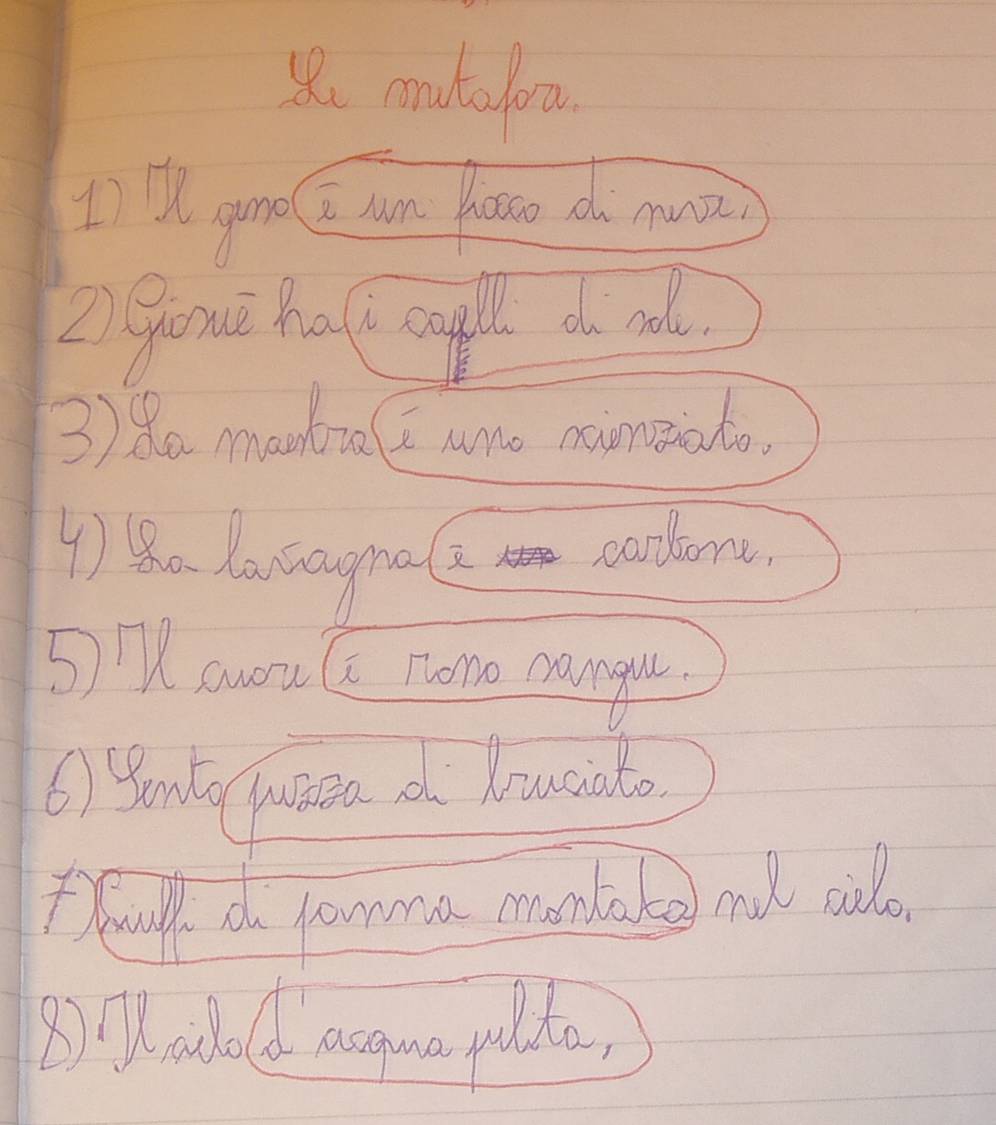 La metafora.
1) Il gesso è un fiocco di neve.
2) Giosuè ha i capelli di sole.
3) La maestra è uno scienziato.
4) La lavagna è carbone.
5) Il cuore è rosso sangue.
6) Sento puzza di bruciato.
7) Ciuffi di panna montata nel cielo.
8) Il cielo d'acqua pulita.